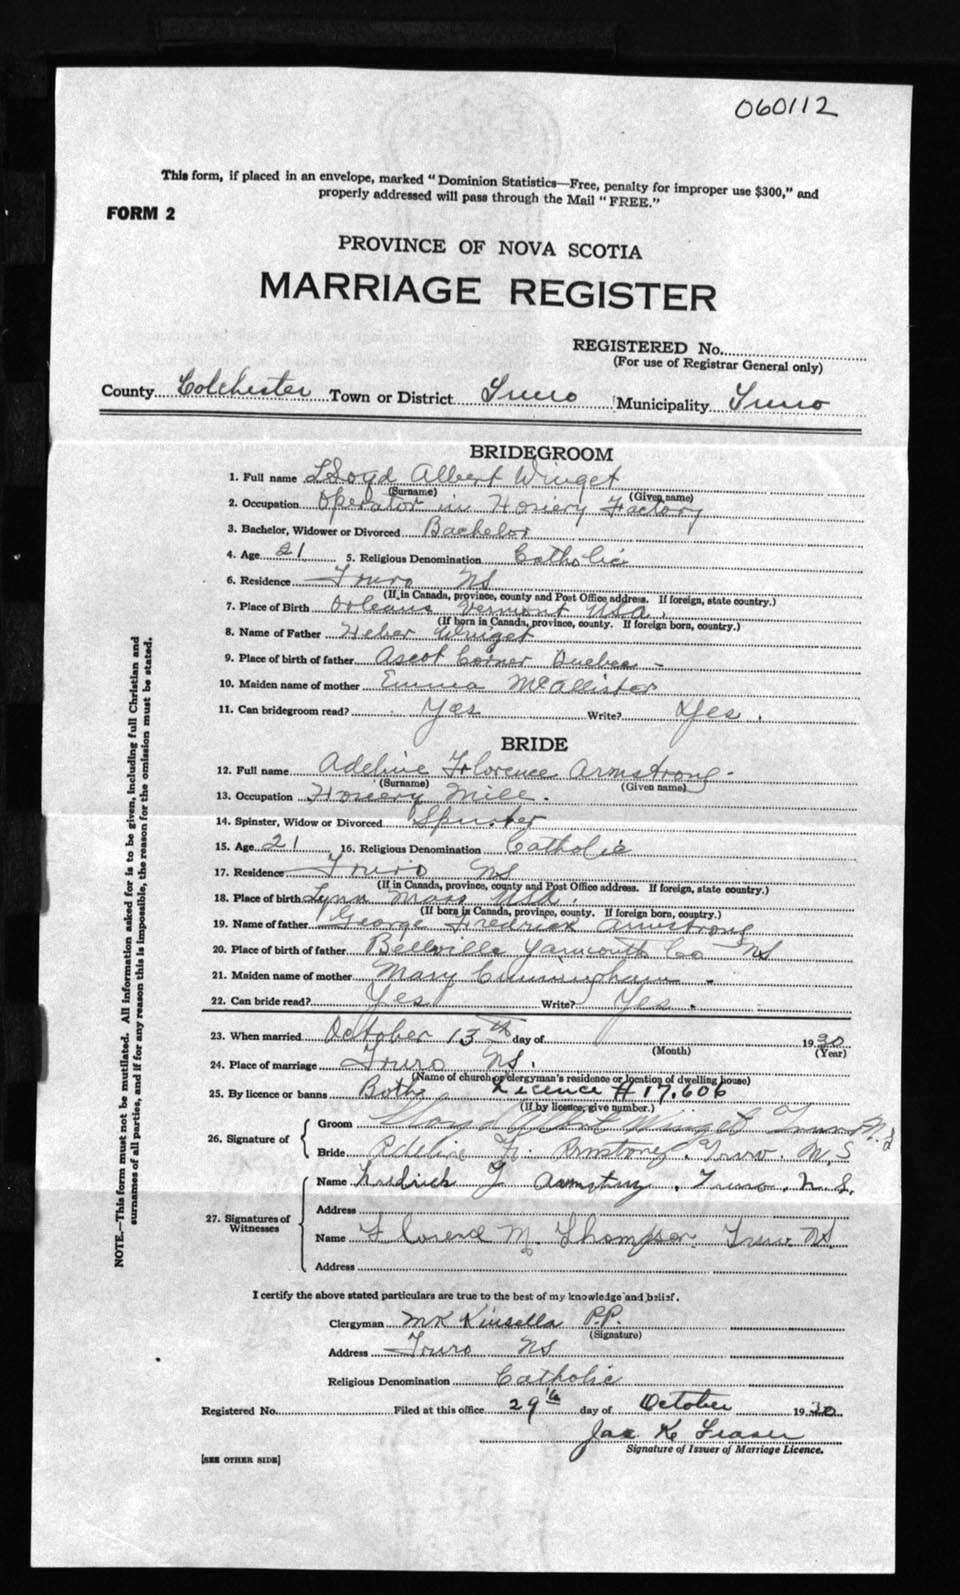 060112
This form, if placed in an envelope, marked "Dominion Statistics—Free, penalty for improper use $300," and
properly addressed will pass through the Mail "FREE."
FORM 2
PROVINCE OF NOVA SCOTIA
MARRIAGE REGISTER
REGISTERED No.
(For use of Registrar General only)
County Colchester Town or District Truro Municipality Truro
BRIDEGROOM
1. Full name Lloyd Albert Winget
(Surname) (Given name)
2. Occupation Operator in Hosiery Factory
3. Bachelor, Widower or Divorced Bachelor
4. Age 21 5. Religious Denomination Catholic
6. Residence Truro NS
(If in Canada, province, county and Post Office address. If foreign, state country.)
7. Place of Birth Orleans Vermont USA.
(If born in Canada, province, county. If foreign born, country.)
8. Name of Father Heber Winget
9. Place of birth of father Ascot Corner Quebec -
10. Maiden name of mother Emma McAllister
11. Can bridegroom read? Yes Write? Yes.
BRIDE
12. Full name Adeline Florence Armstrong -
(Surname) (Given name)
13. Occupation Hosiery Mill.
14. Spinster, Widow or Divorced Spinster
15. Age 21 16. Religious Denomination Catholic
17. Residence Truro NS
(If in Canada, province, county and Post Office address. If foreign, state country.)
18. Place of birth Lynn Mass USA.
(If born in Canada, province, county. If foreign born, country.)
19. Name of father George Fredrick Armstrong
20. Place of birth of father Bellville Yarmouth Co NS
21. Maiden name of mother Mary Cunningham -
22. Can bride read? Yes Write? Yes.
23. When married October 13th day of 1930
(Month) (Year)
24. Place of marriage Truro NS.
(Name of church or clergyman's residence or location of dwelling house)
25. By licence or banns Both Licence # 17,606
(If by licence, give number.)
26. Signature of
Groom Lloyd Albert Winget Truro N.S
Bride Adeline F. Armstrong. Truro. N.S
27. Signatures of Witnesses
Name Fredrick G Armstrong. Truro. N.S.
Address
Name Florence M. Thompson Truro NS.
Address
I certify the above stated particulars are true to the best of my knowledge and belief.
Clergyman Kinsella P.P.
(Signature)
Address Truro NS
Religious Denomination Catholic
Registered No. Filed at this office 29th day of October 1930
Jas K Fraser
Signature of Issuer of Marriage Licence.
[SEE OTHER SIDE]
NOTE.—This form must not be mutilated. All information asked for is to be given, including full Christian and
surnames of all parties, and if for any reason this is impossible, the reason for the omission must be stated.